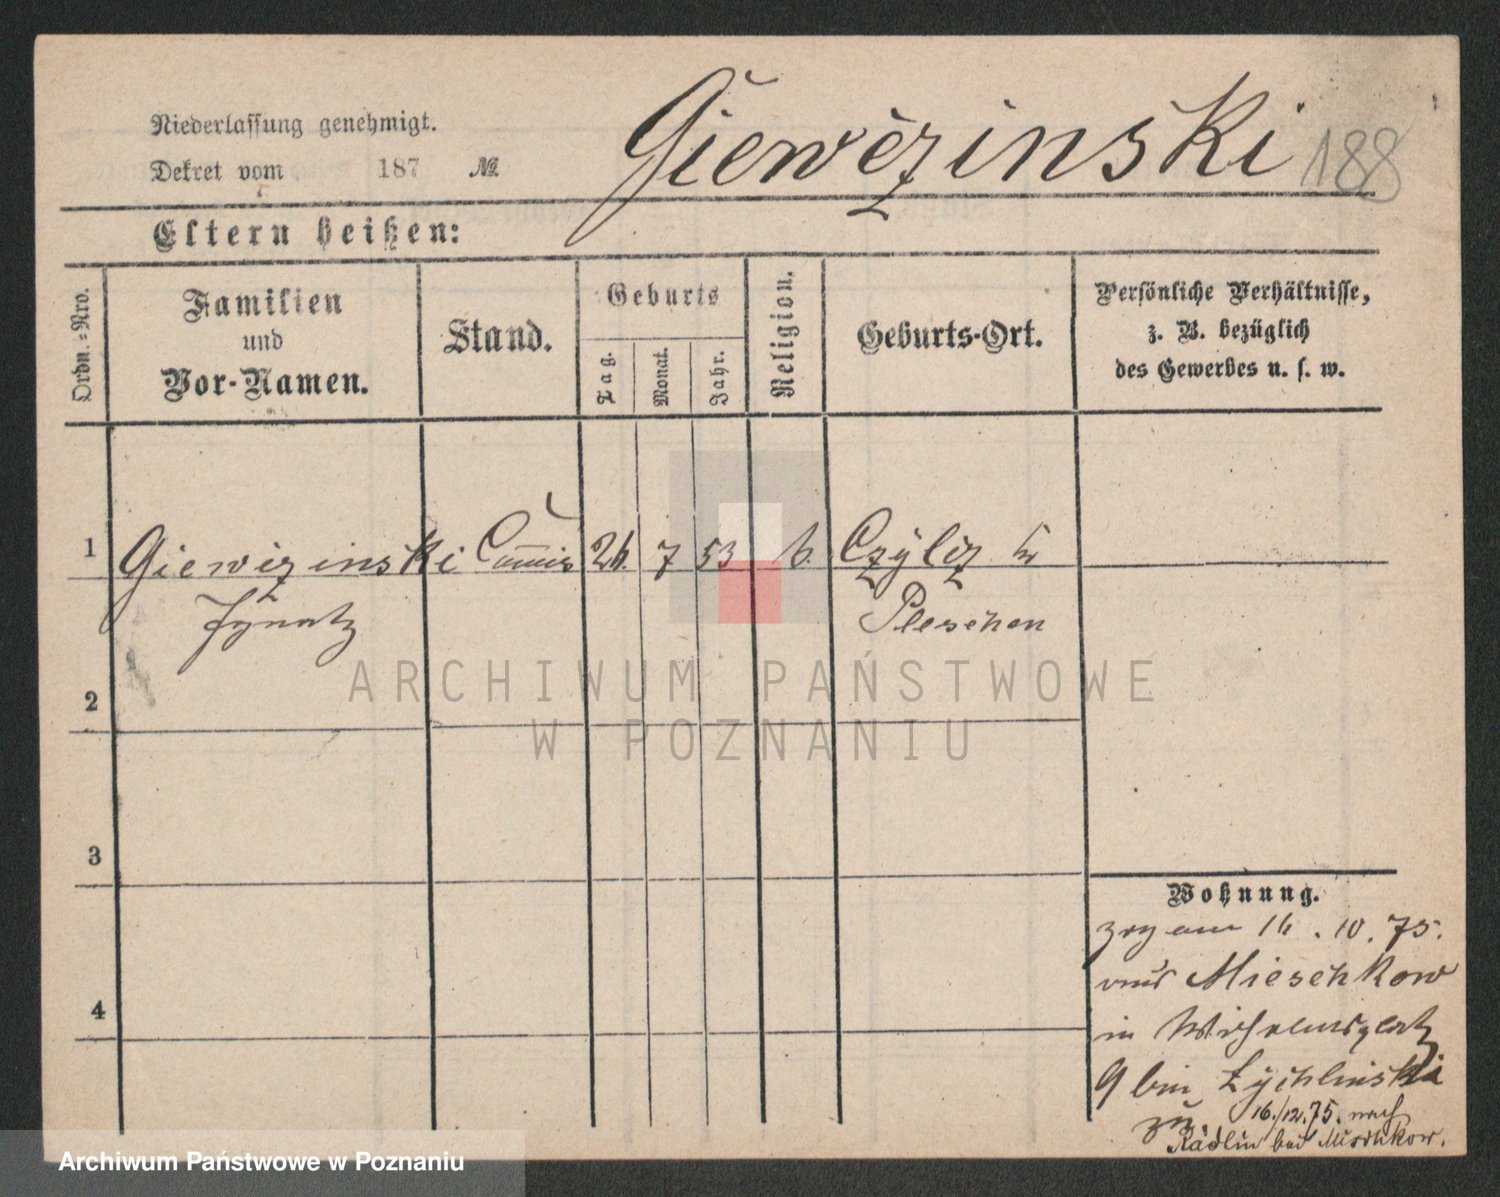 Niederlassung genehmigt.
Dekret vom 187 №
Giewczinski 188
Eltern heißen:
Ordn.-Nro.
Familien
und
Vor-Namen.
Stand.
Geburts
Tag.
Monat.
Jahr.
Religion.
Geburts-Ort.
Persönliche Verhältnisse,
z. B. bezüglich
des Gewerbes u. s. w.
1 Giewizinski Commis 7 53 Czÿliz
Ignatz Pleschen
2
3
4
Wohnung.
zog am . 10. 75.
aus Mieschkow
in Wilhelmsplatz
9 bin Zychlinski
zu 16./12.75. nach
Radlin bei Mieschkow.
ARCHIWUM PAŃSTWOWE
W POZNANIU
Archiwum Państwowe w Poznaniu